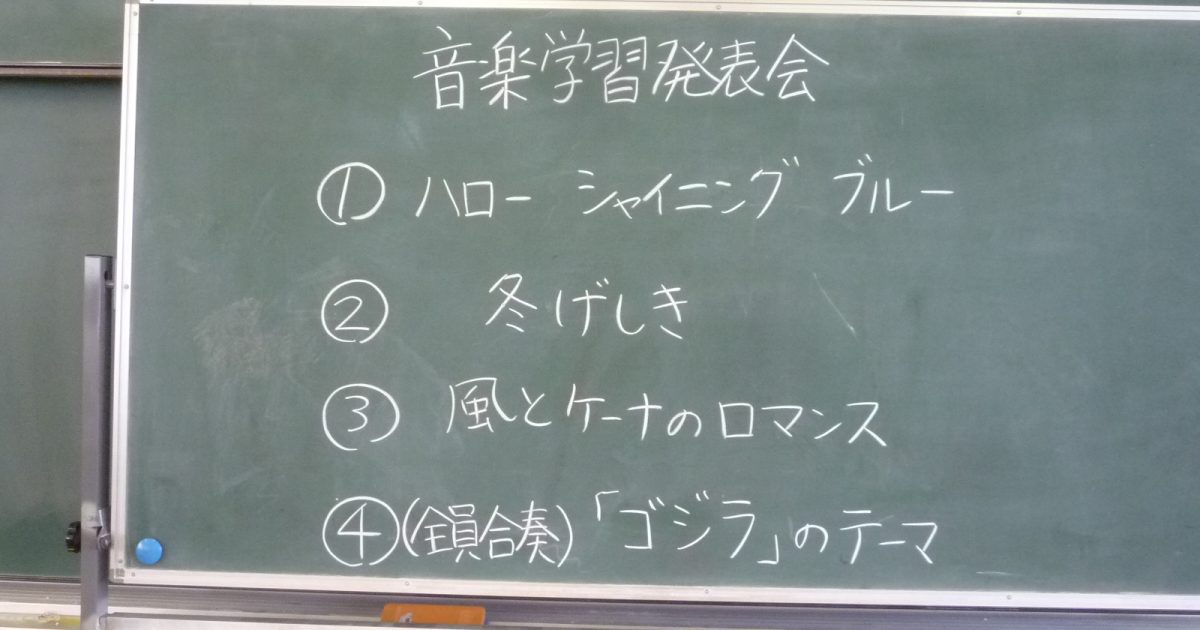 音楽学習発表会
① ハロー シャイニング ブルー
② 冬げしき
③ 風とケーナのロマンス
④(全員合奏)「ゴジラ」のテーマ